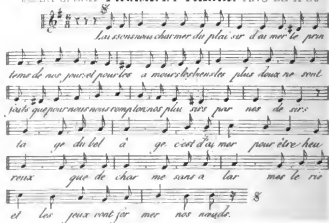 Laissons nous charmer du plai sir d'ai mer le prin
tems de nos jours et pour les a mours les biens les plus doux ne sont
faits que pour nous nous nos plai sirs par nos de sirs
ta ge du bel â ge c'est d'ay mer pour être heu
reux que de char me sans a lar mes le ris
et les jeux vont for mer nos nœuds.